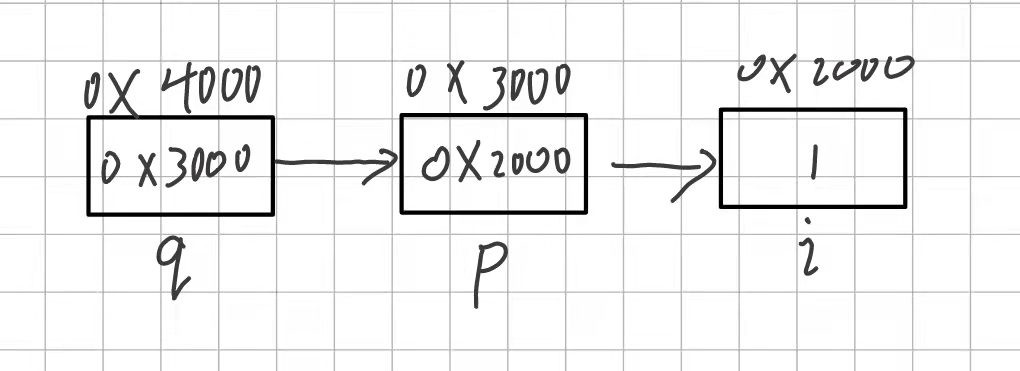 0X 4000 0X 3000 0X 2000
0X3000 0X2000 1
q p i